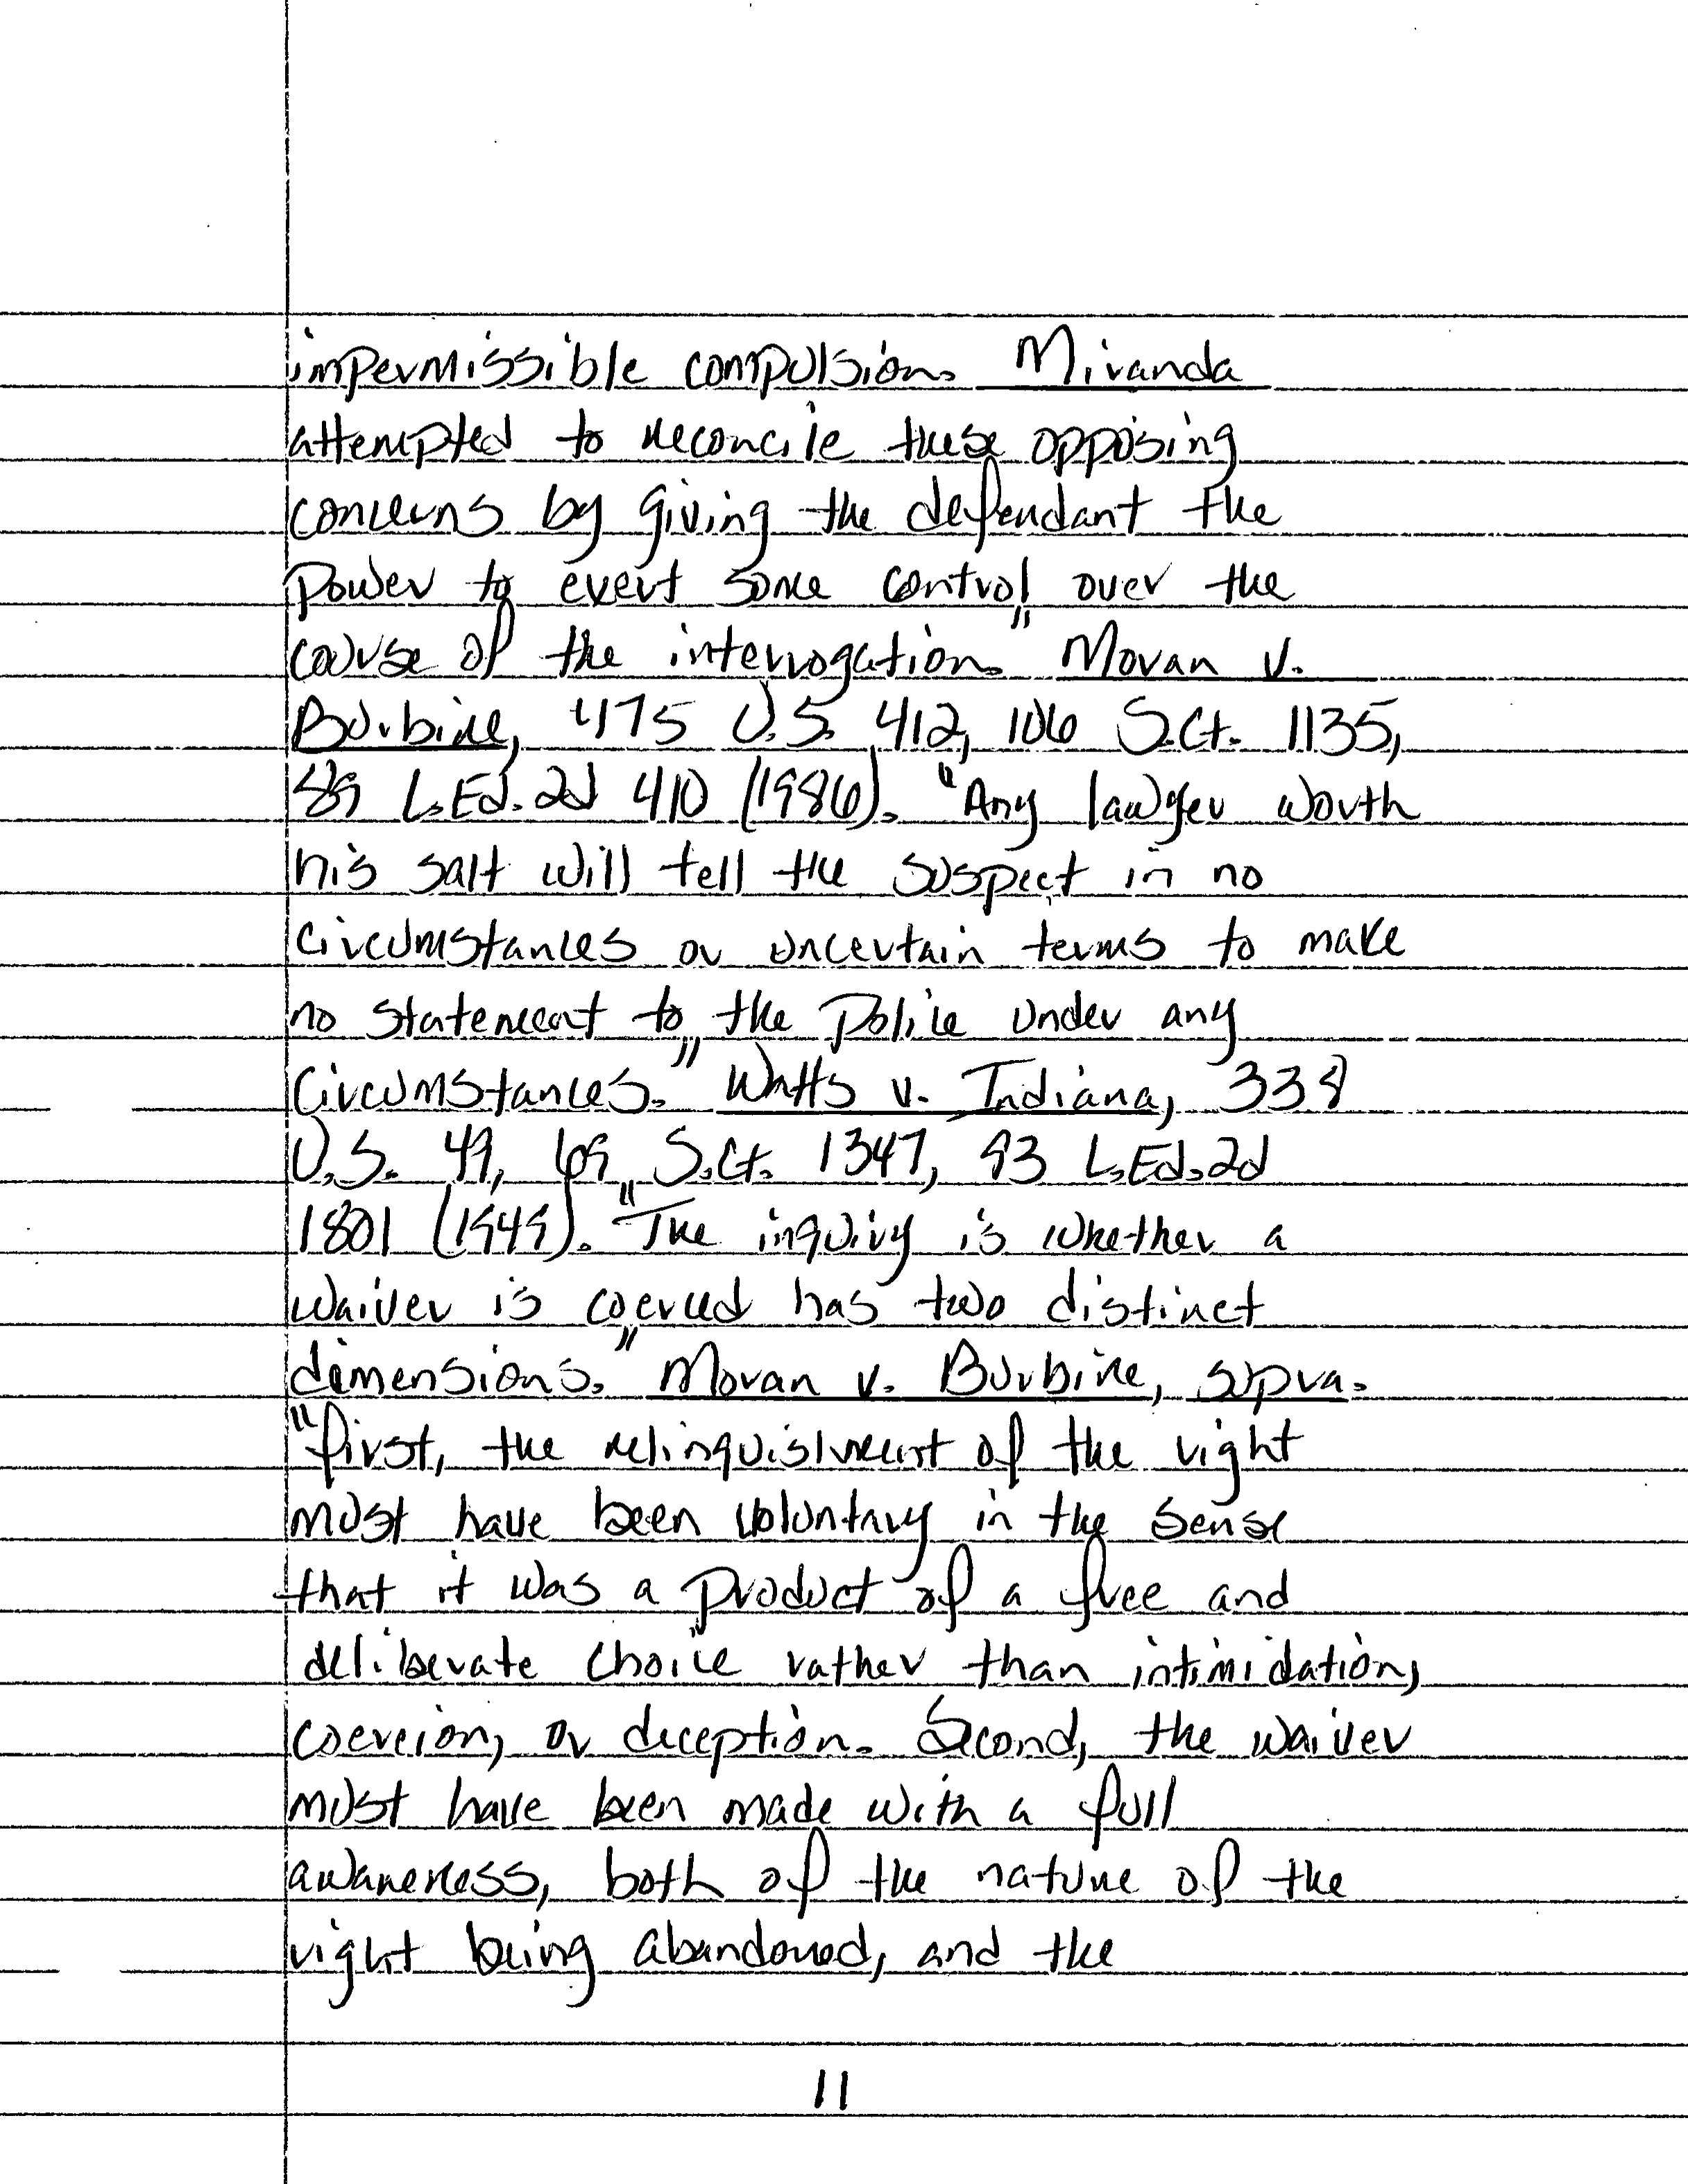 impermissible compulsion. Miranda
attempted to reconcile these opposing
concerns by giving the defendant the
power to exert some control over the
course of the interrogation." Moran v.
Burbine, 475 U.S. 412, 106 S.Ct. 1135,
89 L.Ed.2d 410 (1986). "Any lawyer worth
his salt will tell the suspect in no
circumstances or uncertain terms to make
no statement to the police under any
circumstances." Watts v. Indiana, 338
U.S. 49, 69 S.Ct. 1347, 93 L.Ed.2d
1801 (1949). "The inquiry is whether a
waiver is coerced has two distinct
dimensions." Moran v. Burbine, supra.
"first, the relinquishment of the right
must have been voluntary in the sense
that it was a product of a free and
deliberate choice rather than intimidation,
coercion, or deception. Second, the waiver
must have been made with a full
awareness, both of the nature of the
right being abandoned, and the
11